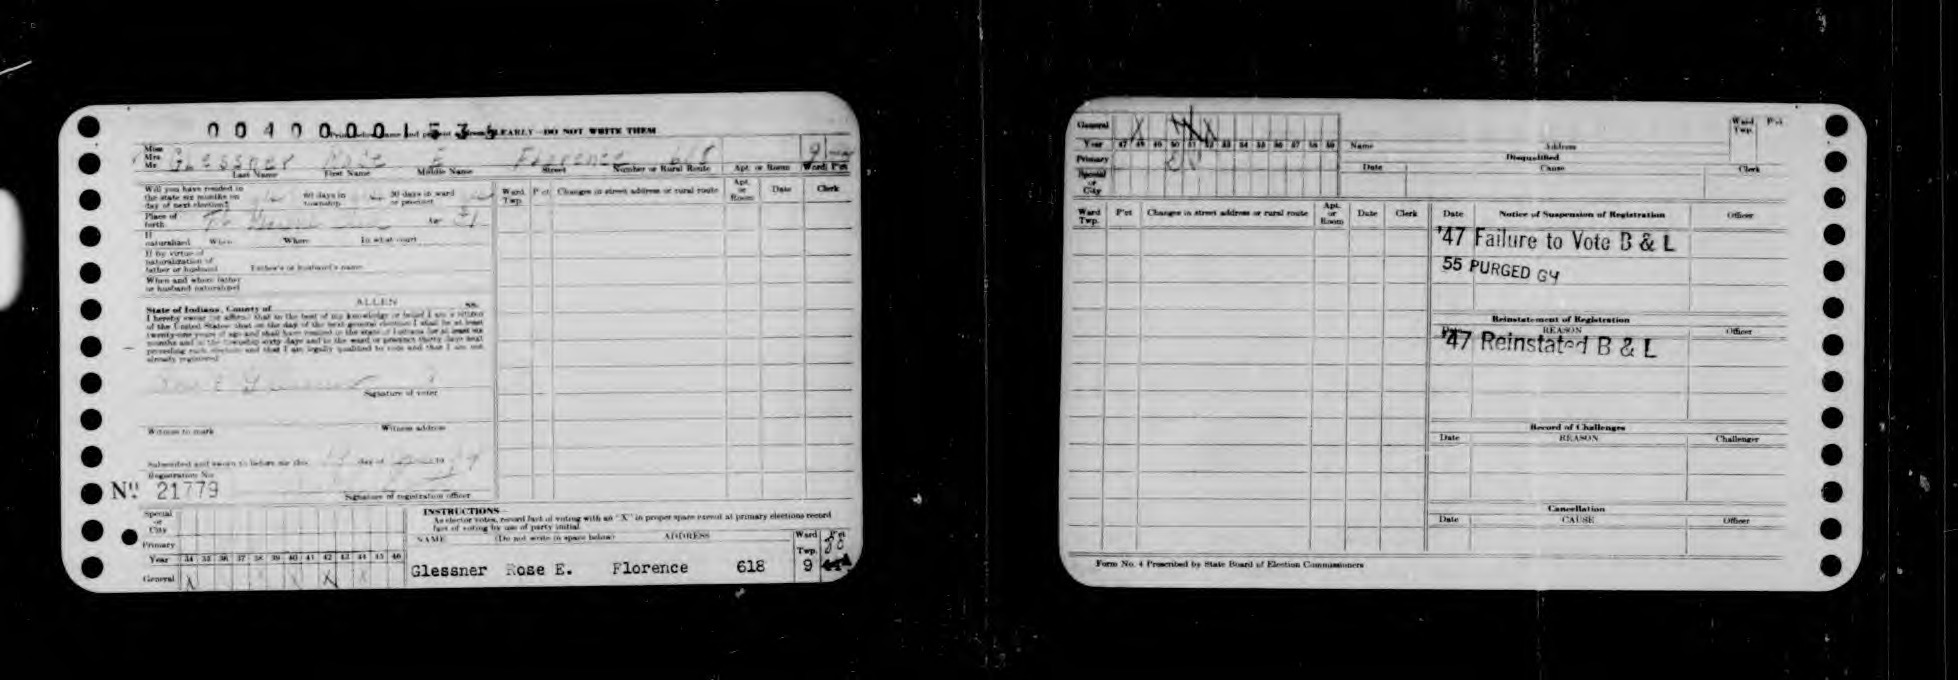 004000015
CLEARLY—DO NOT WRITE THEM
Miss
Mrs.
Mr. Glessner Rose E Florence 618 9
Last Name First Name Middle Name Street Number or Rural Route Apt. or Room Ward P'ct
Will you have resided in
the state six months on
day of next election?
60 days in
township
30 days in ward
or precinct
Place of
birth
Age
If
naturalized When Where In what court
If by virtue of
naturalization of
father or husband Father's or husband's name
When and where father
or husband naturalized
ALLEN
State of Indiana, County of ss.
I hereby swear (or affirm) that to the best of my knowledge or belief I am a citizen
of the United States; that on the day of the next general election I shall be at least
twenty-one years of age and shall have resided in the state of Indiana for at least six
months and in the township sixty days and in the ward or precinct thirty days next
preceding such election and that I am legally qualified to vote and that I am not
already registered
Signature of voter
Witness to mark Witness address
Subscribed and sworn to before me this day of 19
Registration No.
No. 21779
Signature of registration officer
Ward
Twp. P'ct Changes in street address or rural route Apt.
or
Room Date Clerk
Special
or
City
Primary
Year 34 35 36 37 38 39 40 41 42 43 44 45 46
General X X X X
INSTRUCTIONS—
As elector votes, record fact of voting with an "X" in proper space except at primary elections record
fact of voting by use of party initial.
NAME (Do not write in space below) ADDRESS Ward
Twp. P'ct
Glessner Rose E. Florence 618 9
General X X
Year 47 48 49 50 51 52 53 54 55 56 57 58 59
Primary
Special
or
City
Name Address
Disqualified
Date Cause Clerk
Ward
Twp. P'ct
Ward
Twp. P'ct Changes in street address or rural route Apt.
or
Room Date Clerk
Date Notice of Suspension of Registration Officer
'47 Failure to Vote B & L
55 PURGED G4
Reinstatement of Registration
Date REASON Officer
'47 Reinstated B & L
Record of Challenges
Date REASON Challenger
Cancellation
Date CAUSE Officer
Form No. 4 Prescribed by State Board of Election Commissioners